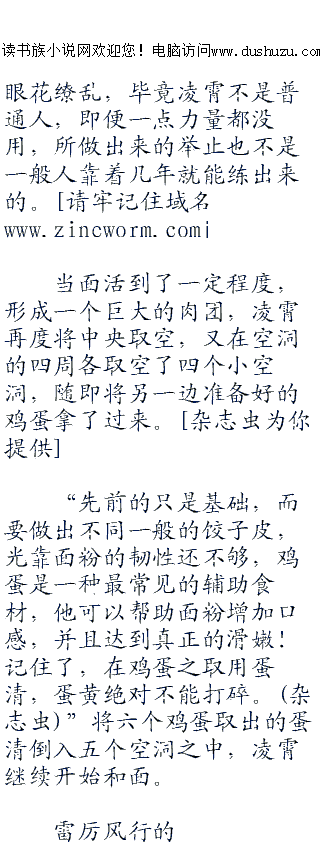 读书族小说网欢迎您！电脑访问www.dushuzu.com
眼花缭乱，毕竟凌霄不是普
通人，即便一点力量都没
用，所做出来的举止也不是
一般人靠着几年就能练出来
的。[请牢记住域名
www.zincworm.com¦
当面活到了一定程度，
形成一个巨大的肉团，凌霄
再度将中央取空，又在空洞
的四周各取空了四个小空
洞，随即将另一边准备好的
鸡蛋拿了过来。[杂志虫为你
提供]
“先前的只是基础，而
要做出不同一般的饺子皮，
光靠面粉的韧性还不够，鸡
蛋是一种最常见的辅助食
材，他可以帮助面粉增加口
感，并且达到真正的滑嫩！
记住了，在鸡蛋之取用蛋
清，蛋黄绝对不能打碎。(杂
志虫)”将六个鸡蛋取出的蛋
清倒入五个空洞之中，凌霄
继续开始和面。
雷厉风行的